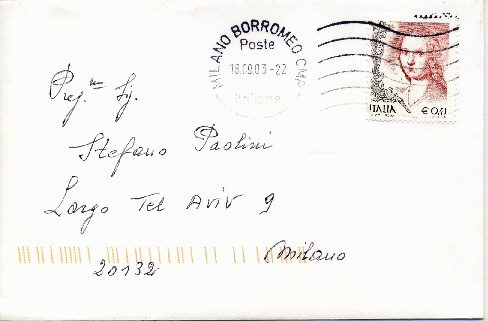 MILANO BORROMEO CMP
Poste
18.09.03-22
Italiane
ITALIA
€0,41
Preg.mo Sig.
Stefano Paolini
Largo Tel Aviv 9
20132 Milano